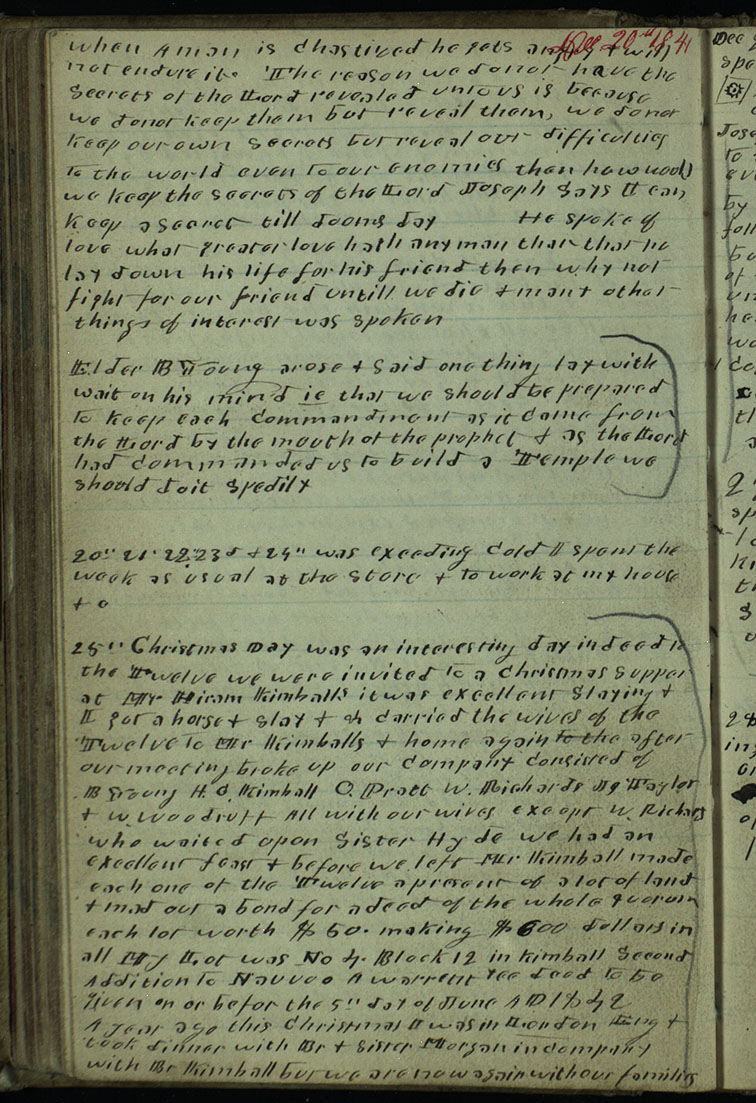 Dec 20th 1841
when A man is chastised he gets angry & will
not endure it. The reason we do not have the
Secrets of the Lord revealed unto us is because
we do not keep them but reveal them, we do not
keep our own Secrets but reveal our difficulties
to the world even to our enemies then how would
we keep the secrets of the Lord Joseph Says I can
keep a Secret till dooms day He spoke of
love what greater love hath any man than that he
lay down his life for his friend then why not
fight for our friend untill we die & many other
things of interest was spoken
Elder B Young arose & said one thing lay with
wait on his mind ie that we should be prepared
to keep each commandment as it came from
the Lord by the mouth of the prophet & as the Lord
had commanded us to build a Temple we
should do it Spedily
20th 21st 22nd 23d & 24th was exceding Cold I spent the
week as usual at the Store & to work at my house
& c
25th Christmas Day was an interesting day indeed to
the Twelve we were invited to a Christmas Supper
at Mr Hiram Kimballs it was excellent Slaying &
I got a horse & Slay & carried the wives of the
Twelve to Mr Kimballs & home again after
our meeting broke up our company consisted of
B Young H. C. Kimball O. Pratt W. Richards Taylor
& W. Woodruff All with our wives except W. Richards
who waited upon Sister Hyde we had an
excellent feast & before we left Mr Kimball made
each one of the Twelve a present of a lot of land
& mad out a bond for a deed of the whole quorum
each lot worth $ 50. making $ 600 dollars in
all My Lot was No 4. Block 12 in Kimball Second
Addition to Nauvoo A warrent Tee deed to be
given on or befor the 5th day of June AD 1842
A year ago this Christmas I was in London Eng &
took dinner with Br & Sister Morgan in company
with Br Kimball but we are now again with our families